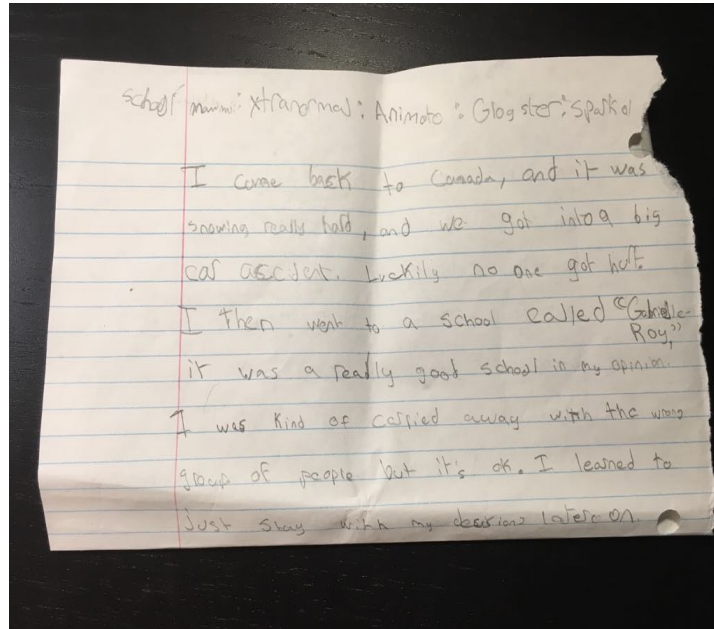 school : Xtranormal : Animoto : Glogster : Sparkol
I came back to Canada, and it was
snowing really hard, and we got into a big
car accident. Luckily no one got hurt.
I then went to a school called "Gabrielle-
Roy,"
it was a really good school in my opinion.
I was kind of carried away with the wrong
group of people but it's ok. I learned to
just stay with my decisions later on.